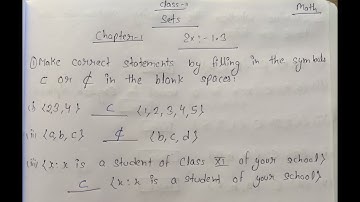 class-11
Math
Sets
Chapter-1
Ex:-1.3
① Make correct statements by filling in the symbols
⊂ or ⊄ in the blank spaces:
(i) {2,3,4} ⊂ {1,2,3,4,5}
(ii) {a,b,c} ⊄ {b,c,d}
(iii) {x:x is a student of class XI of your school}
⊂ {x:x is a student of your school}